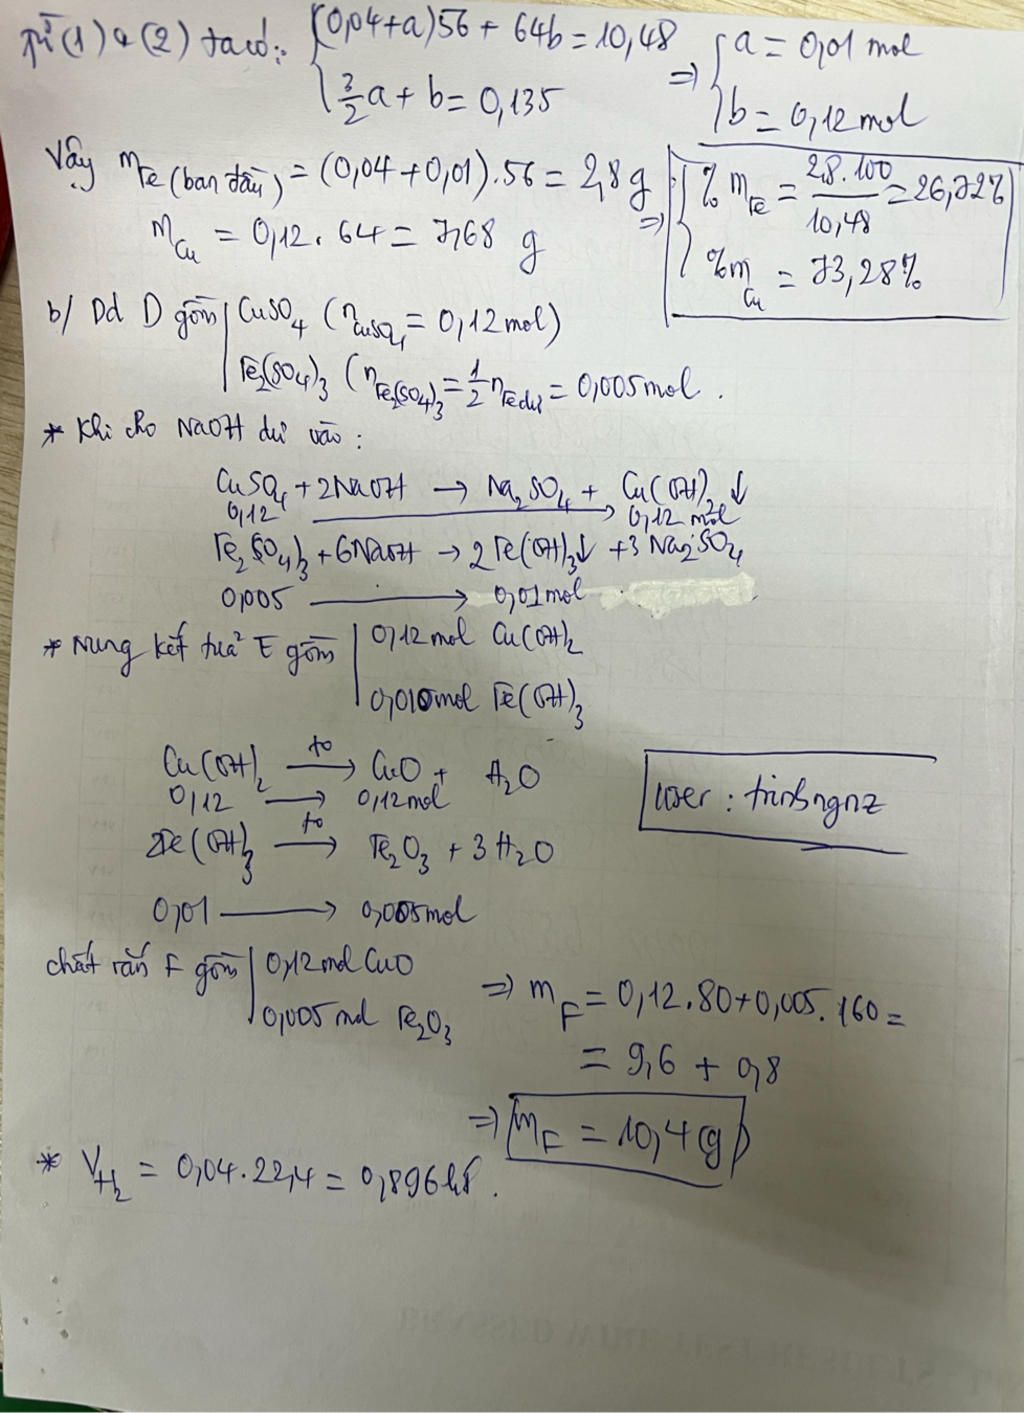 Từ (1) & (2) ta có: { (0,04+a)56 + 64b = 10,48
3/2 a + b = 0,135
=> { a = 0,01 mol
b = 0,12 mol
Vậy mFe (ban đầu) = (0,04+0,01).56 = 2,8 g
mCu = 0,12. 64 = 7,68 g
=> { % mFe = 2,8.100/10,48 = 26,72%
%mCu = 73,28%
b/ Dd D gồm | CuSO4 (nCuSO4 = 0,12 mol)
Fe2(SO4)3 (nFe2(SO4)3 = 1/2 nFe dư = 0,005 mol.
* Khi cho NaOH dư vào:
CuSO4 + 2NaOH → Na2SO4 + Cu(OH)2 ↓
0,12 → 0,12 mol
Fe2(SO4)3 + 6NaOH → 2Fe(OH)3↓ + 3Na2SO4
0,005 → 0,01 mol
* Nung kết tủa E gồm | 0,12 mol Cu(OH)2
0,010 mol Fe(OH)3
Cu(OH)2 →to CuO + H2O
0,12 → 0,12 mol
2Fe(OH)3 →to Fe2O3 + 3H2O
0,01 → 0,005 mol
user: trinhngnz
chất rắn F gồm | 0,12 mol CuO
0,005 mol Fe2O3
=> mF = 0,12.80 + 0,005.160 =
= 9,6 + 0,8
=> mF = 10,4 (g)
* VH2 = 0,04.22,4 = 0,896 lít.